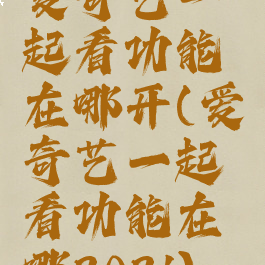 爱奇艺一
起看功能
在哪开(爱
奇艺一起
看功能在
哪2021)